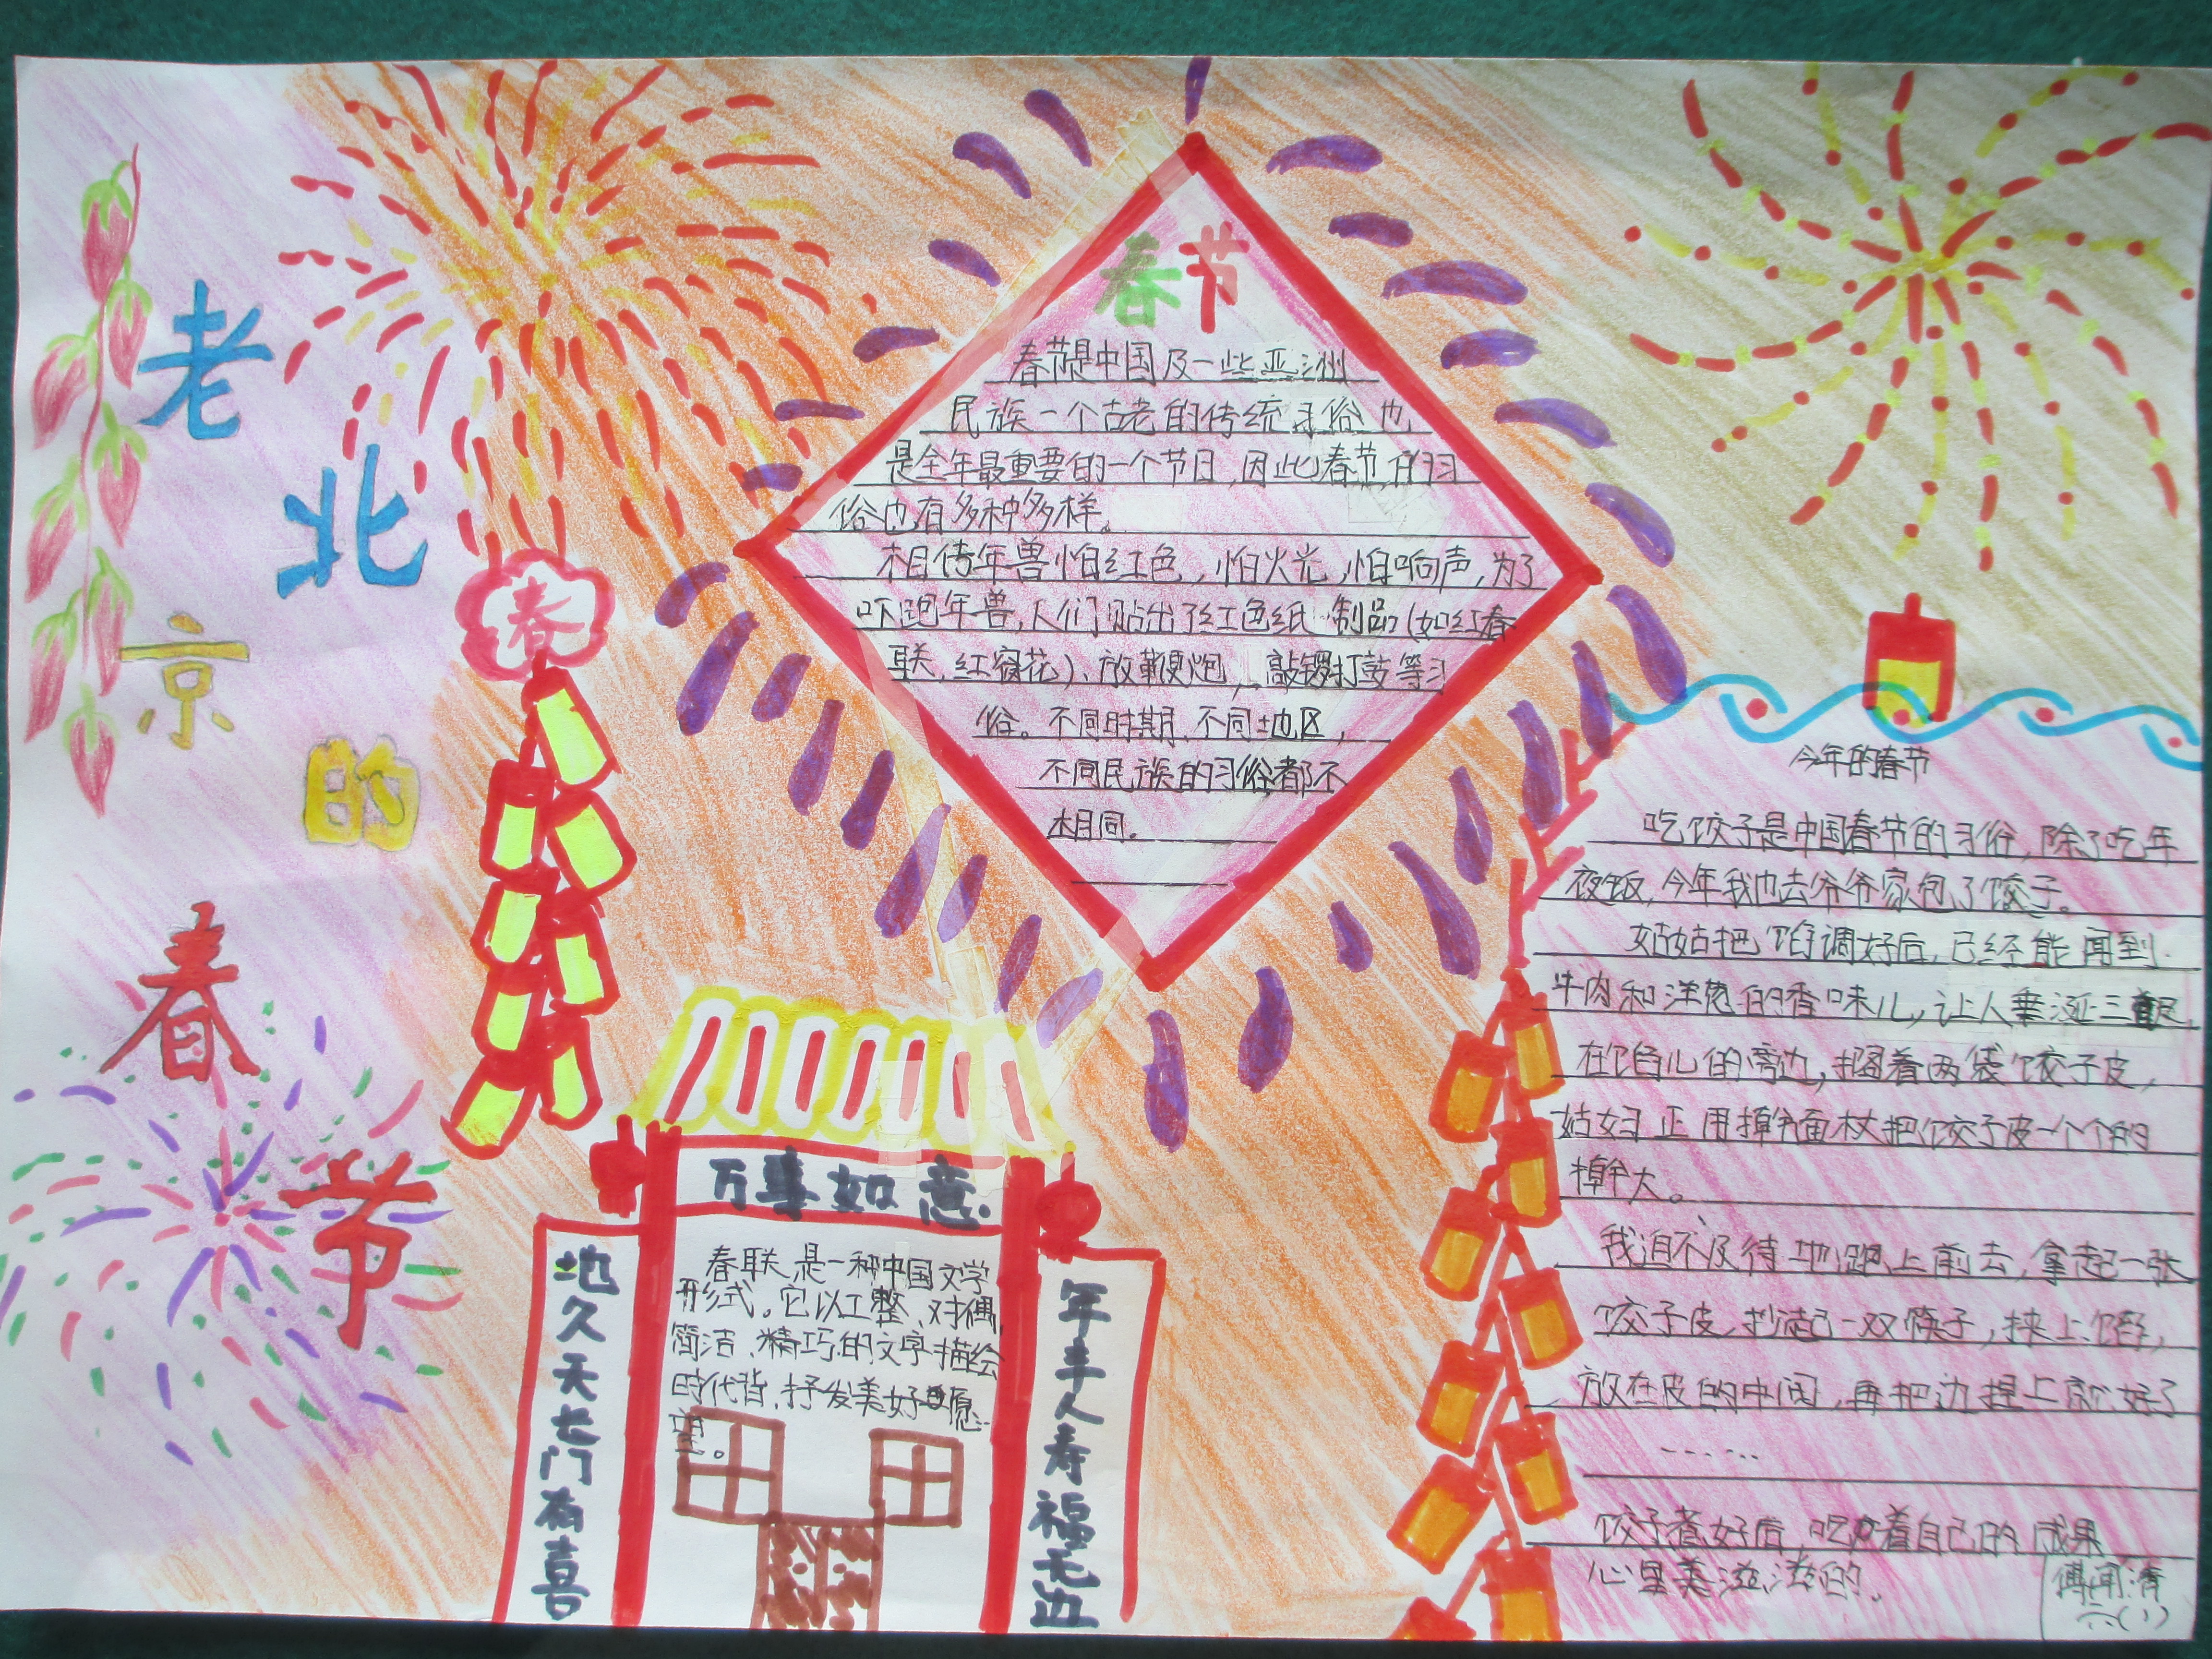 老北京的春节
春节
春节是中国及一些亚洲
民族一个古老的传统习俗也
是全年最重要的一个节日,因此春节的习
俗也有多种多样。
相传年兽怕红色,怕火光,怕响声,为了
吓跑年兽,人们贴出了红色纸制品(如红春
联,红窗花)、放鞭炮,敲锣打鼓等习
俗。不同时期、不同地区,
不同民族的习俗都不
相同。
春
万事如意
地久天长门有喜
年丰人寿福无边
春联是一种中国文学
形式。它以工整、对偶,
简洁、精巧的文字描绘
时代背,抒发美好愿
望。
今年的春节
吃饺子是中国春节的习俗,除了吃年
夜饭,今年我也去爷爷家包了饺子。
姑姑把馅调好后,已经能闻到
牛肉和洋葱的香味儿,让人垂涎三尺,
在馅儿的旁边,搁着两袋饺子皮,
姑妇正用擀面杖把饺子皮一个个的
擀大。
我迫不及待地跑上前去,拿起一张
饺子皮,抄起一双筷子,挟上馅,
放在皮的中间,再把边捏上就好了
……
饺子煮好后,吃着自己的成果
心里美滋滋的。
傅闻清
六(1)